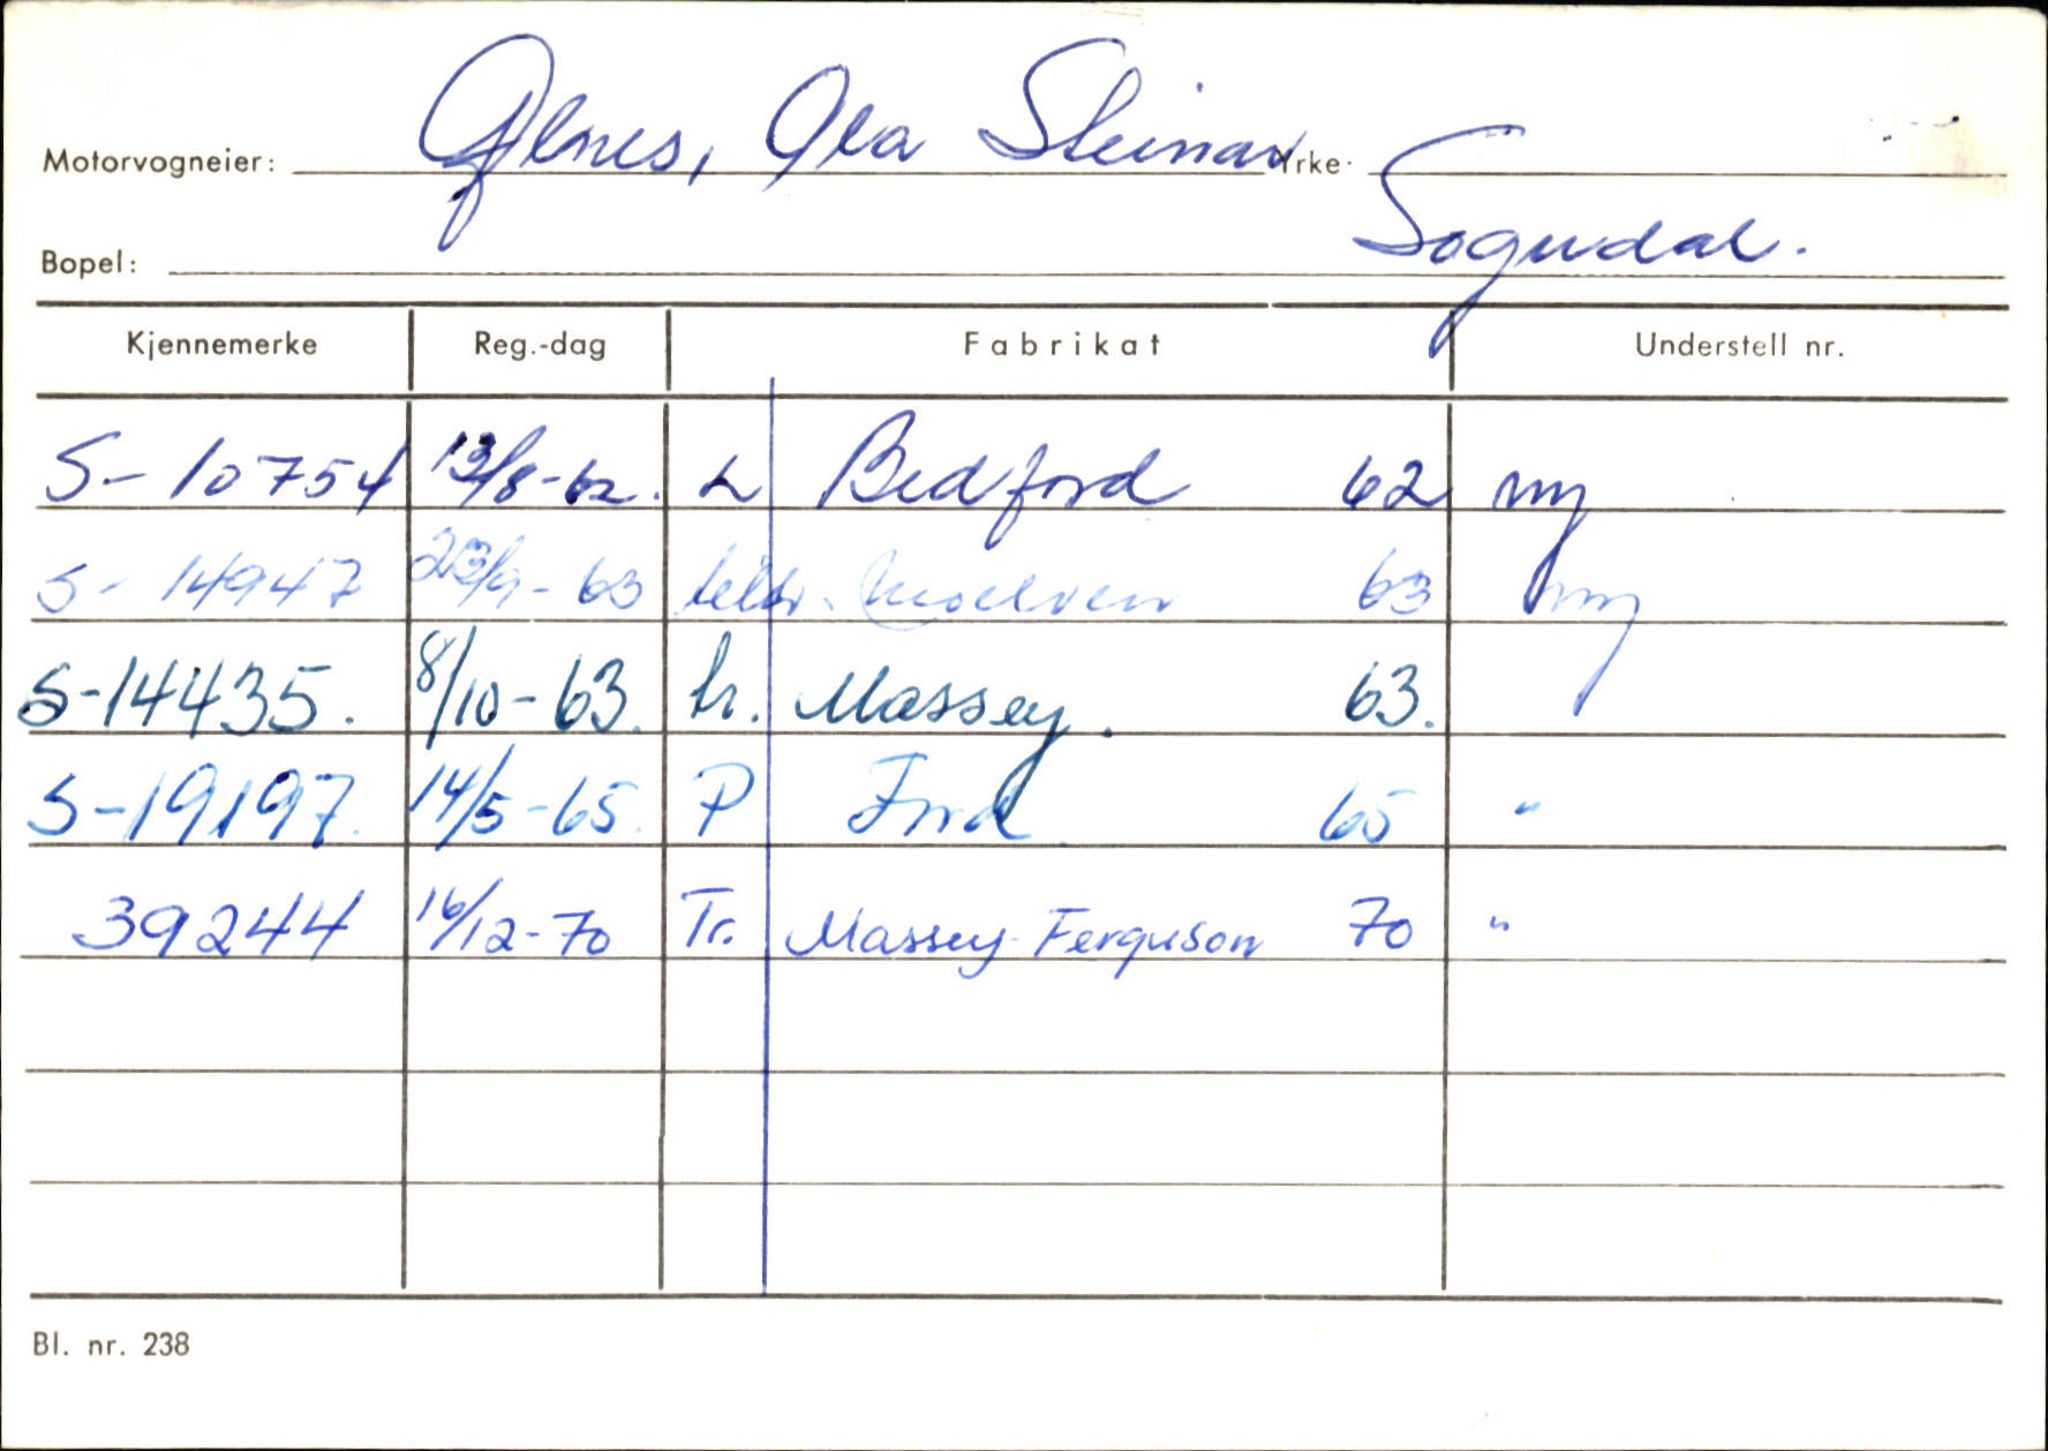 Motorvogneier: Ola Steinar Yrke.
Bopel: Sogndal.
Kjennemerke Reg.-dag Fabrikat Understell nr.
S-10754 13/8-62. L Bedford 62 ny
S-14947 23/9-63 Moelven 63 ny
S-14435. 8/10-63. tr. Massey. 63.
S-19197. 14/5-65. P Ford 65 "
39244 16/12-70 Tr. Massey-Ferguson 70 "
Bl. nr. 238